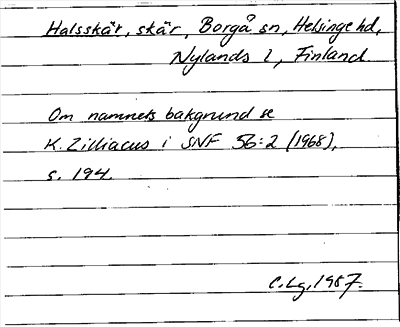 Halsskär, skär, Borgå sn, Helsinge hd,
Nylands l, Finland.
Om namnets bakgrund se
K. Zilliacus i SNF 56:2 (1968),
s. 194.
C. Lg, 1987.